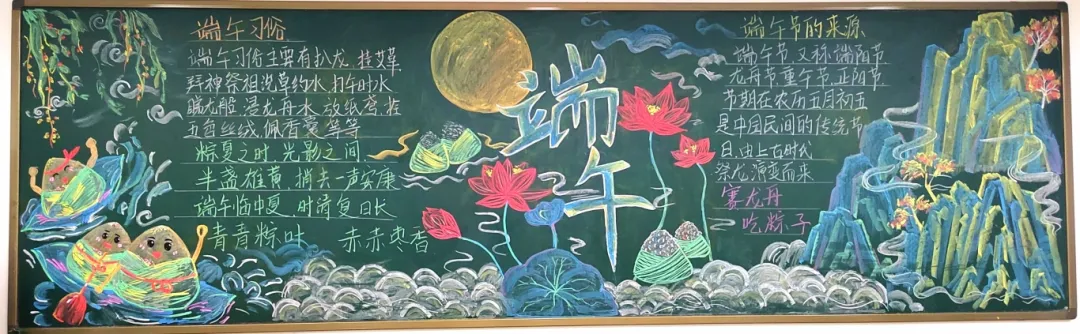 端午习俗
端午习俗主要有扒龙,挂艾草
拜神祭祖洗草约水,打午时水
龙船,浸龙舟水,放纸鸢,拴
五色丝绒,佩香囊等等
粽夏之时,光影之间
半盏雄黄,捎去一声安康
端午临中夏,时清复日长
青青粽味 赤赤枣香
端午
端午节的来源
端午节,又称端阳节
龙舟节重午节,正阳节
节期在农历五月初五
是中国民间的传统节
日,由上古时代
祭龙演变而来
赛龙舟
吃粽子